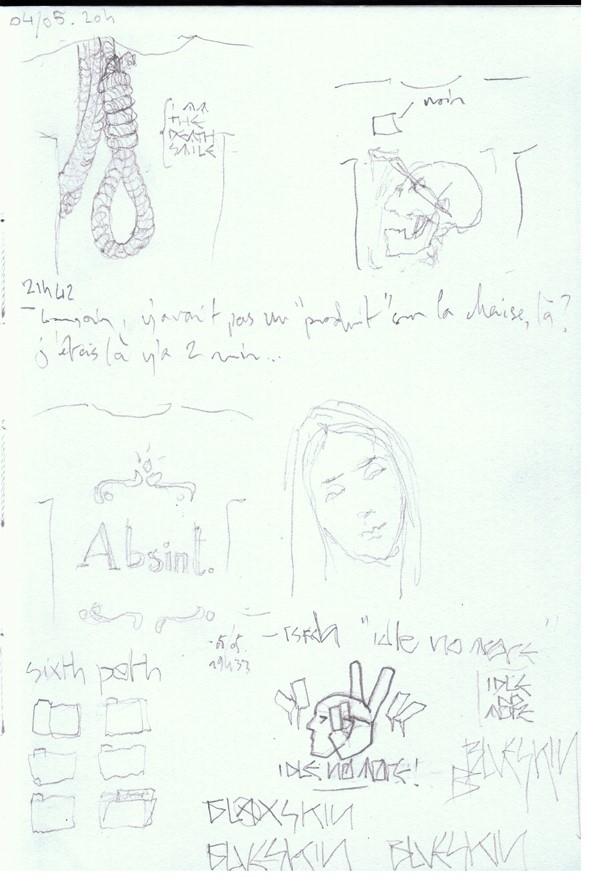 04/05. 20h
I AM
THE
DEATH
SMILE
noir
21h42
y'avait pas un "produit" sur la chaise, là?
j'étais là y'a 2 min...
Absint.
19h33
"idle no more"
sixth path
IDLE
NO
MORE
IDLE NO MORE!
BLUESKIN
BLOXSKIN
BLUESKIN BLUESKIN